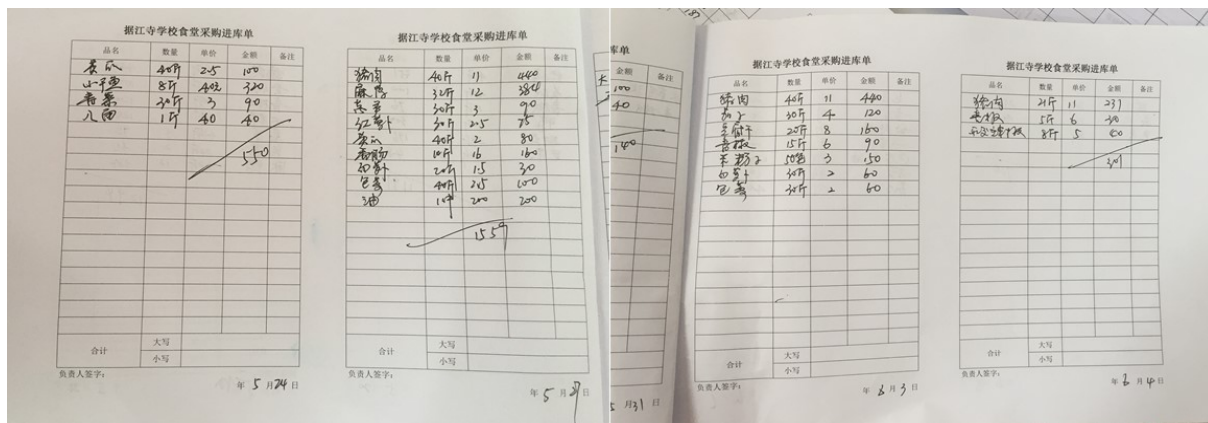 据江寺学校食堂采购进库单
品名 数量 单价 金额 备注
黄瓜 40斤 2.5 100
8斤 40元 320
30斤 3 90
八角 1斤 40 40
550
合计 大写
小写
负责人签字：
年 5 月 24 日
据江寺学校食堂采购进库单
品名 数量 单价 金额 备注
猪肉 40斤 11 440
32斤 12 384
30斤 3 90
30斤 2.5 75
黄瓜 40斤 2 80
香肠 10斤 16 160
20斤 1.5 30
包菜 40斤 2.5 100
油 200 200
1559
合计 大写
小写
负责人签字：
年 5 月 日
库单
金额 备注
100
40
140
5 月 31 日
据江寺学校食堂采购进库单
品名 数量 单价 金额 备注
猪肉 40斤 11 440
茄子 30斤 4 120
20斤 8 160
青椒 15斤 6 90
3 150
30斤 2 60
包菜 30斤 2 60
合计 大写
小写
负责人签字：
年 6 月 3 日
据江寺学校食堂采购进库单
品名 数量 单价 金额 备注
猪肉 21斤 11 231
青椒 5斤 6 30
8斤 5 40
301
合计 大写
小写
负责人签字：
年 6 月 4 日